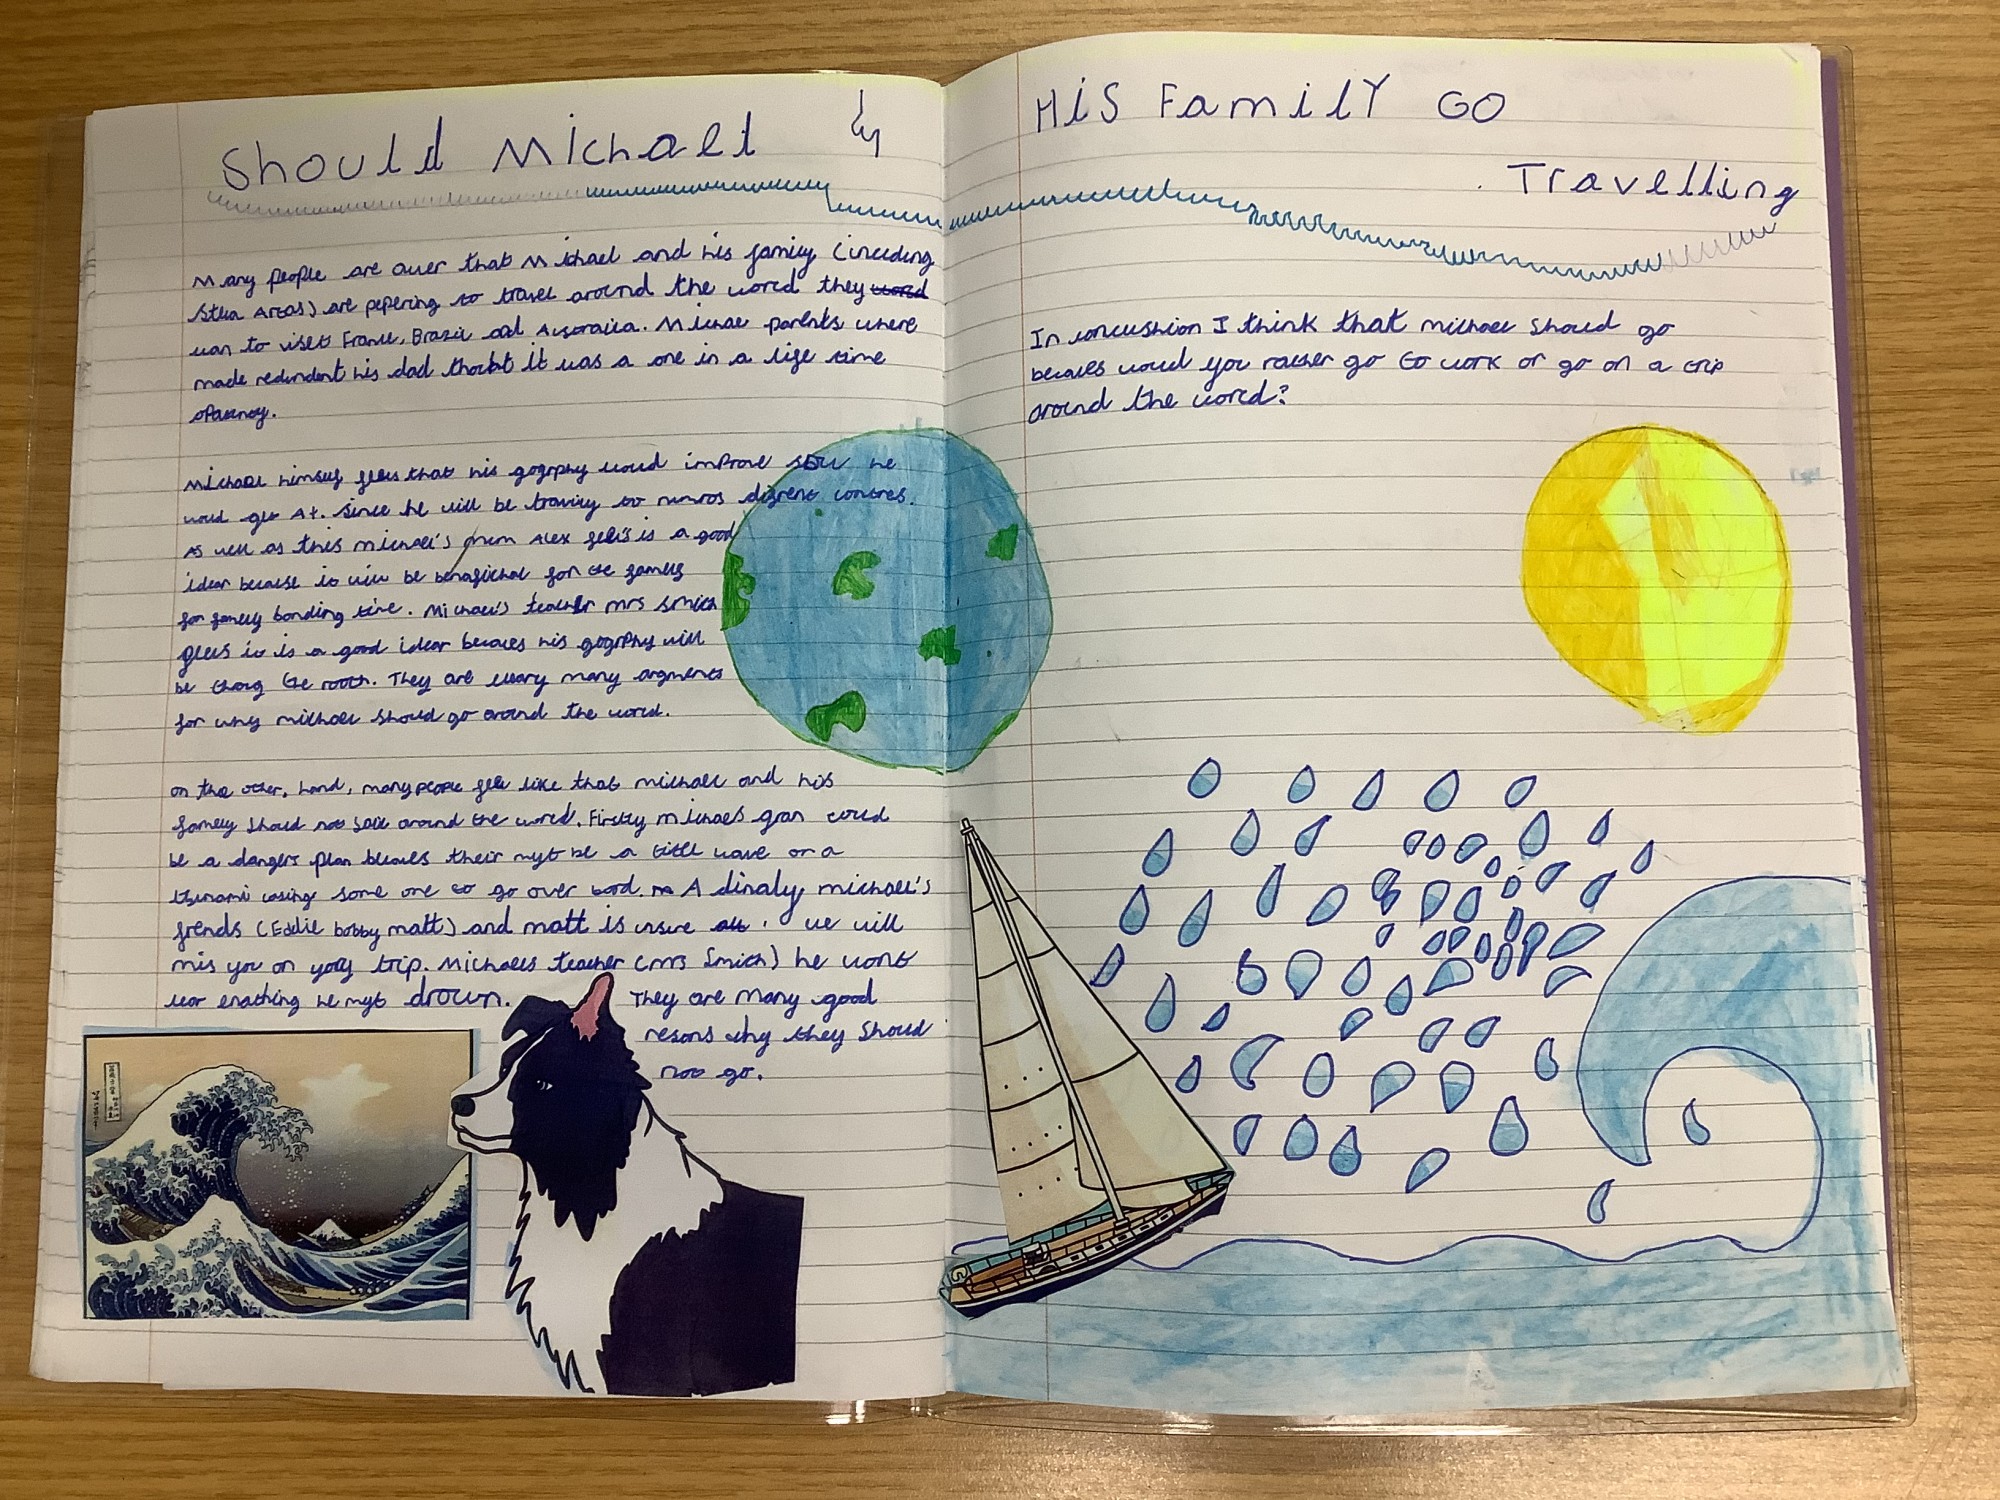 Should Michael &
HiS FamilY GO
Travelling
Many people are awer that Michael and his family (incuding
Stella Artas) are pepering to travel around the world they
wan to viset France, Brazil and Australia. Michae parents where
made redundent his dad thoubt it was a one in a life time
opatunoy.
Michael himself feels that his gogrphy would improve
he
woud get A+. Since he will be traviling to numros difrent contres.
As well as this michael's mum Alex feels is a good
idear because it will be benafichal for the family
for family bonding time. Michael's teacher mrs Smith
feels it is a good idear becaues his gogrphy will
be thoug the rooth. They are many argments
for why michael should go around the world.
on the other, hand, many people feel like that michael and his
family should not sail around the world. Firstly michaels gran could
be a danger plan becaues their myt be a title wave or a
tsunami casing some one to go over bord. A dinaly, michael's
frends (Eddie bobby matt) and matt is unsure . we will
mis you on yory trip. Michaels teacher (mrs Smith) he wont
lear enathing he myt drown. They are Many good
resons why they Should
not go.
In concushion I think that michael should go
becaues would you rather go to work or go on a trip
around the world?